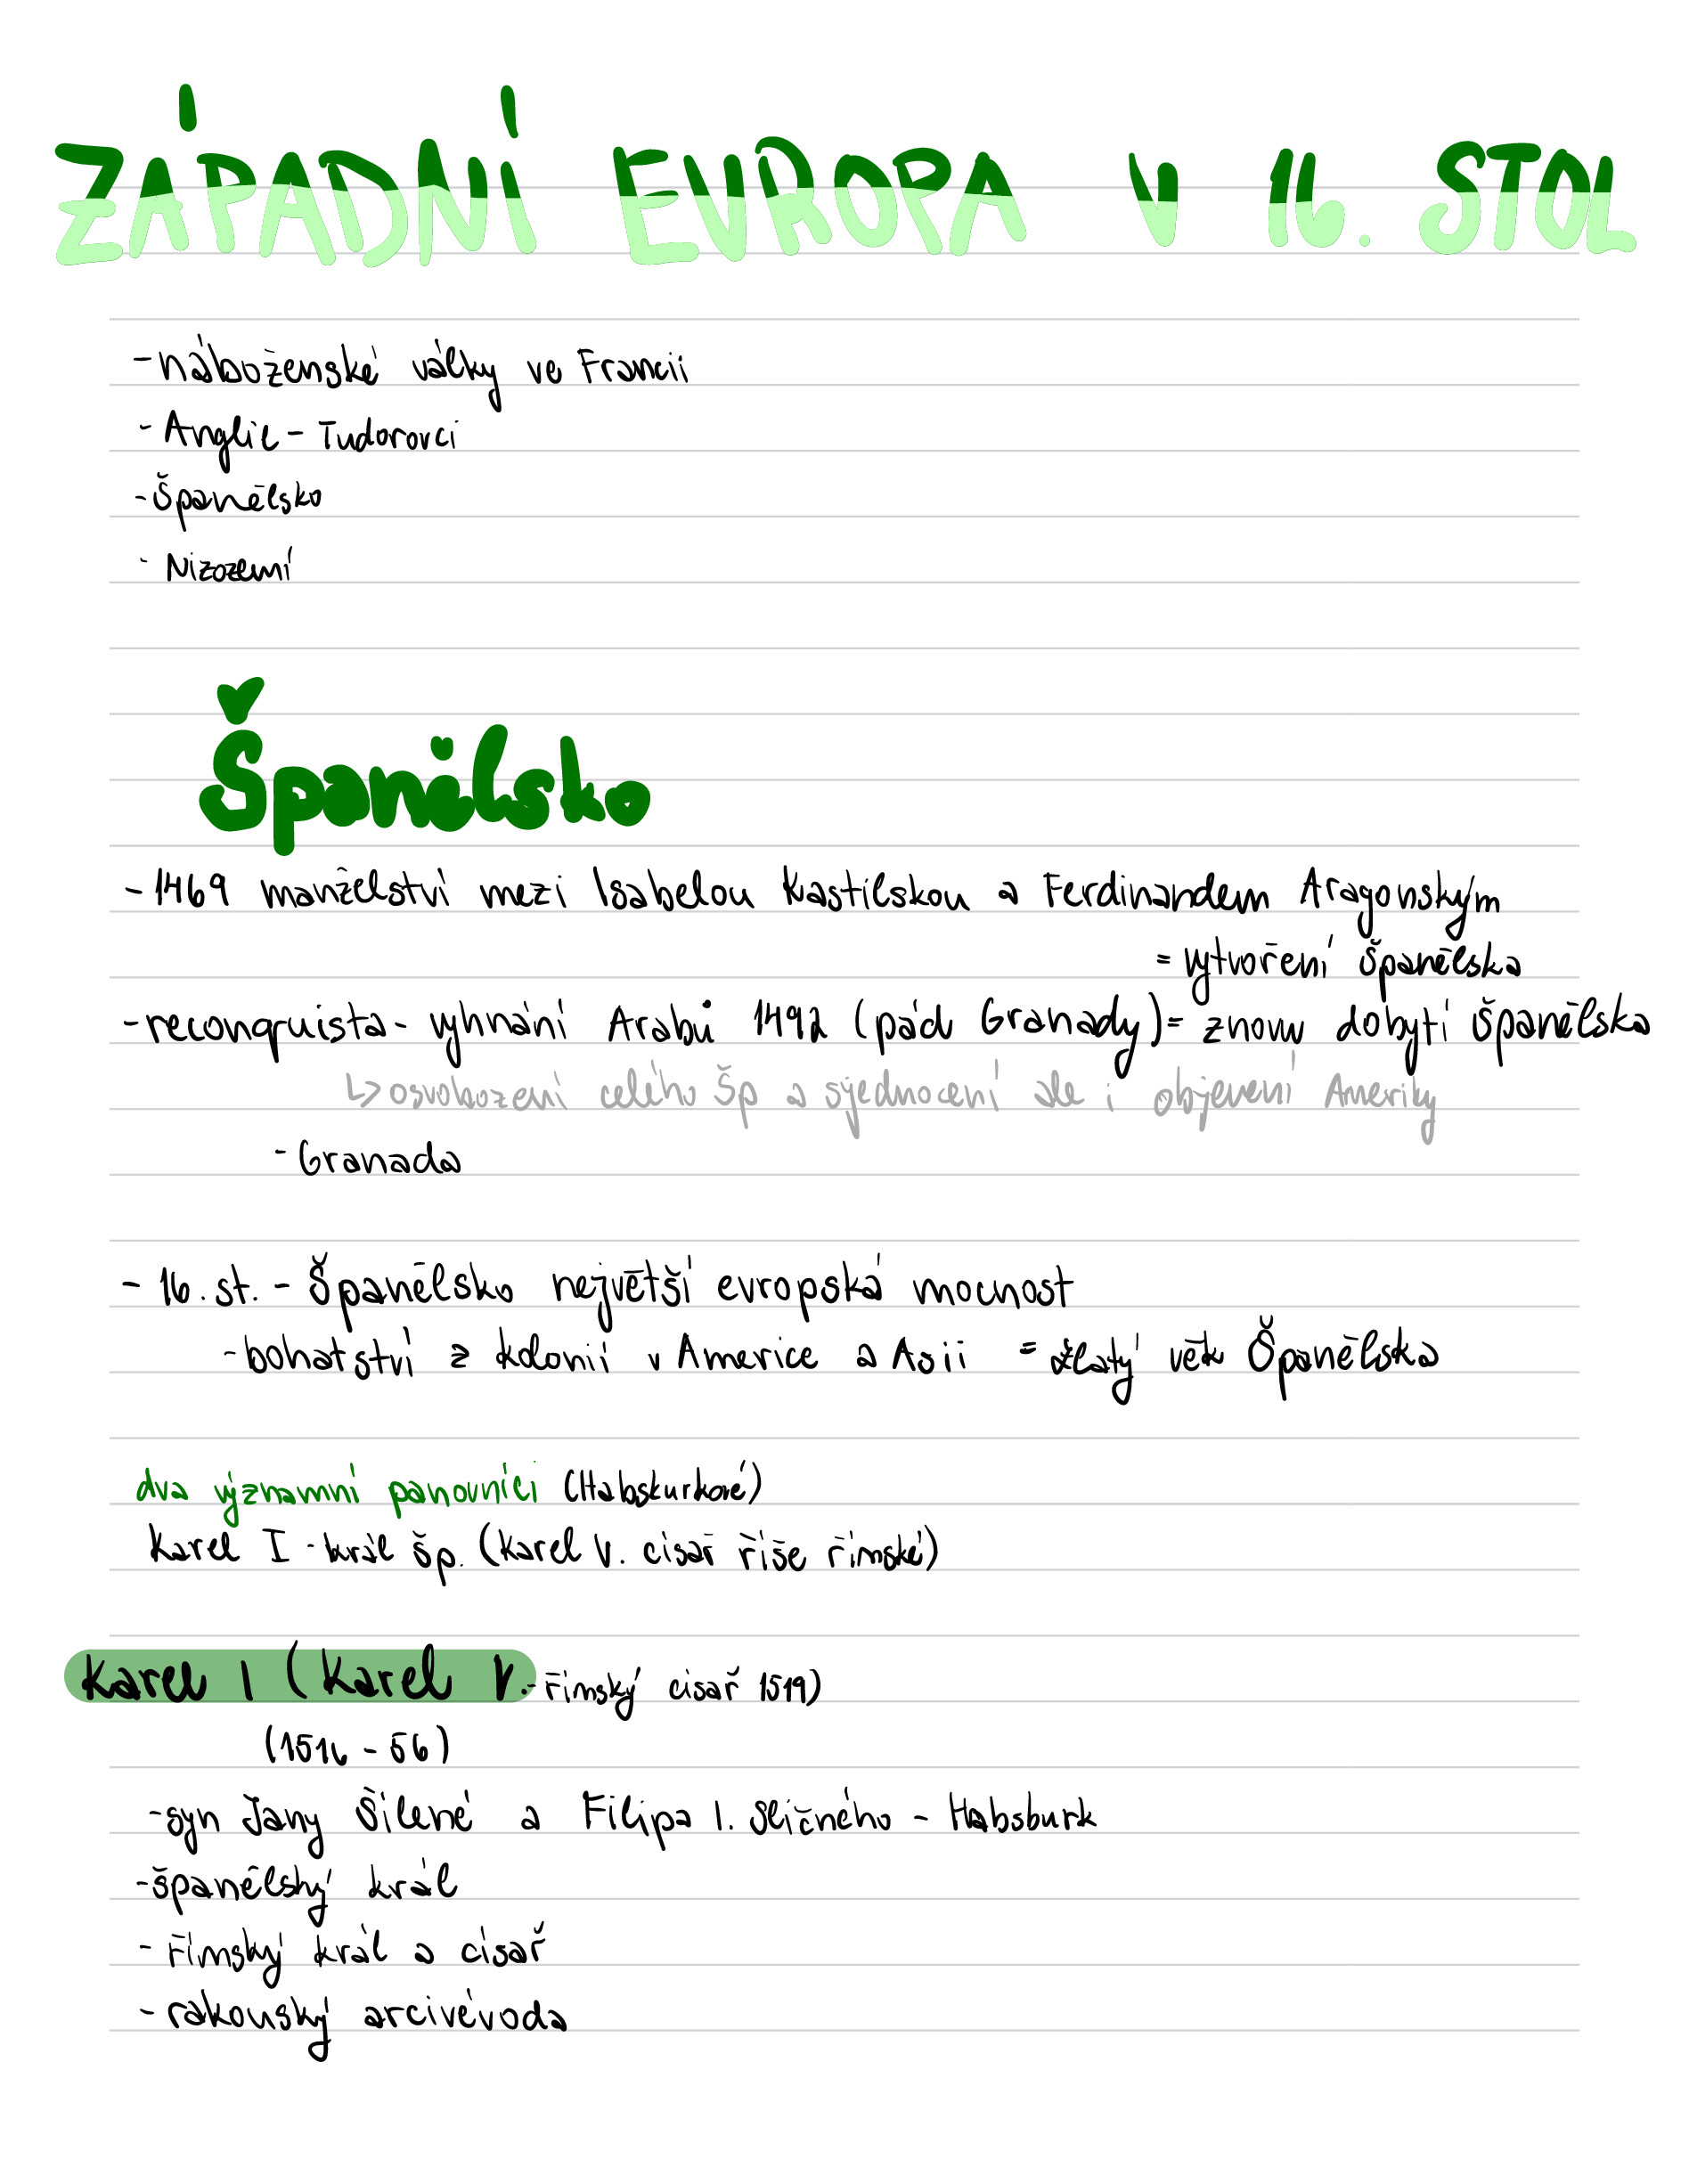 ZÁPADNÍ EVROPA V 16. STOL
- náboženské války ve Francii
- Anglie - Tudorovci
- Španělsko
- Nizozemí
Španělsko
- 1469 manželství mezi Isabelou Kastilskou a Ferdinandem Aragonským
= vytvoření Španělska
- reconquista - vyhnání Arabů 1492 (pád Granady) = znovu dobytí Španělska
↳ osvobození celého Šp a sjednocení ale i objevení Ameriky
- Granada
- 16. st. - Španělsko největší evropská mocnost
- bohatství z kolonií v Americe a Asii = zlatý věk Španělska
dva významní panovníci (Habskurkové)
Karel I - král Šp. (Karel V. císař říše římské)
Karel I (Karel V. - římský císař 1519)
(1516 - 56)
- syn Jany Šílené a Filipa I. Sličného - Habsburk
- španělský král
- římský král a císař
- rakouský arcivévoda